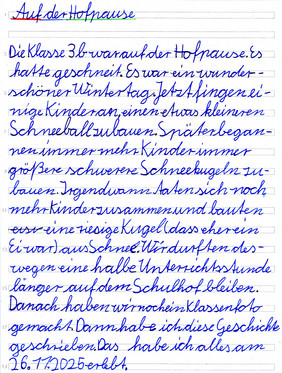 Auf der Hofpause
Die Klasse 3.b war auf der Hofpause. Es
hatte geschneit. Es war ein wunder-
schöner Wintertag. Jetzt fingen ei-
nige Kinder an, einen etwas kleineren
Schneeball zu bauen. Später began-
nen immer mehr Kinder immer
größere schwerere Schneekugeln zu
bauen. Irgendwann taten sich noch
mehr Kinder zusammen und bauten
eine riesige Kugel (dass eher ein
Ei war) aus Schnee. Wir durften des-
wegen eine halbe Unterrichtsstunde
länger auf dem Schulhof bleiben.
Danach haben wir noch ein Klassenfoto
gemacht. Dann habe ich diese Geschichte
geschrieben. Das habe ich alles am
26.11.2025 erlebt.